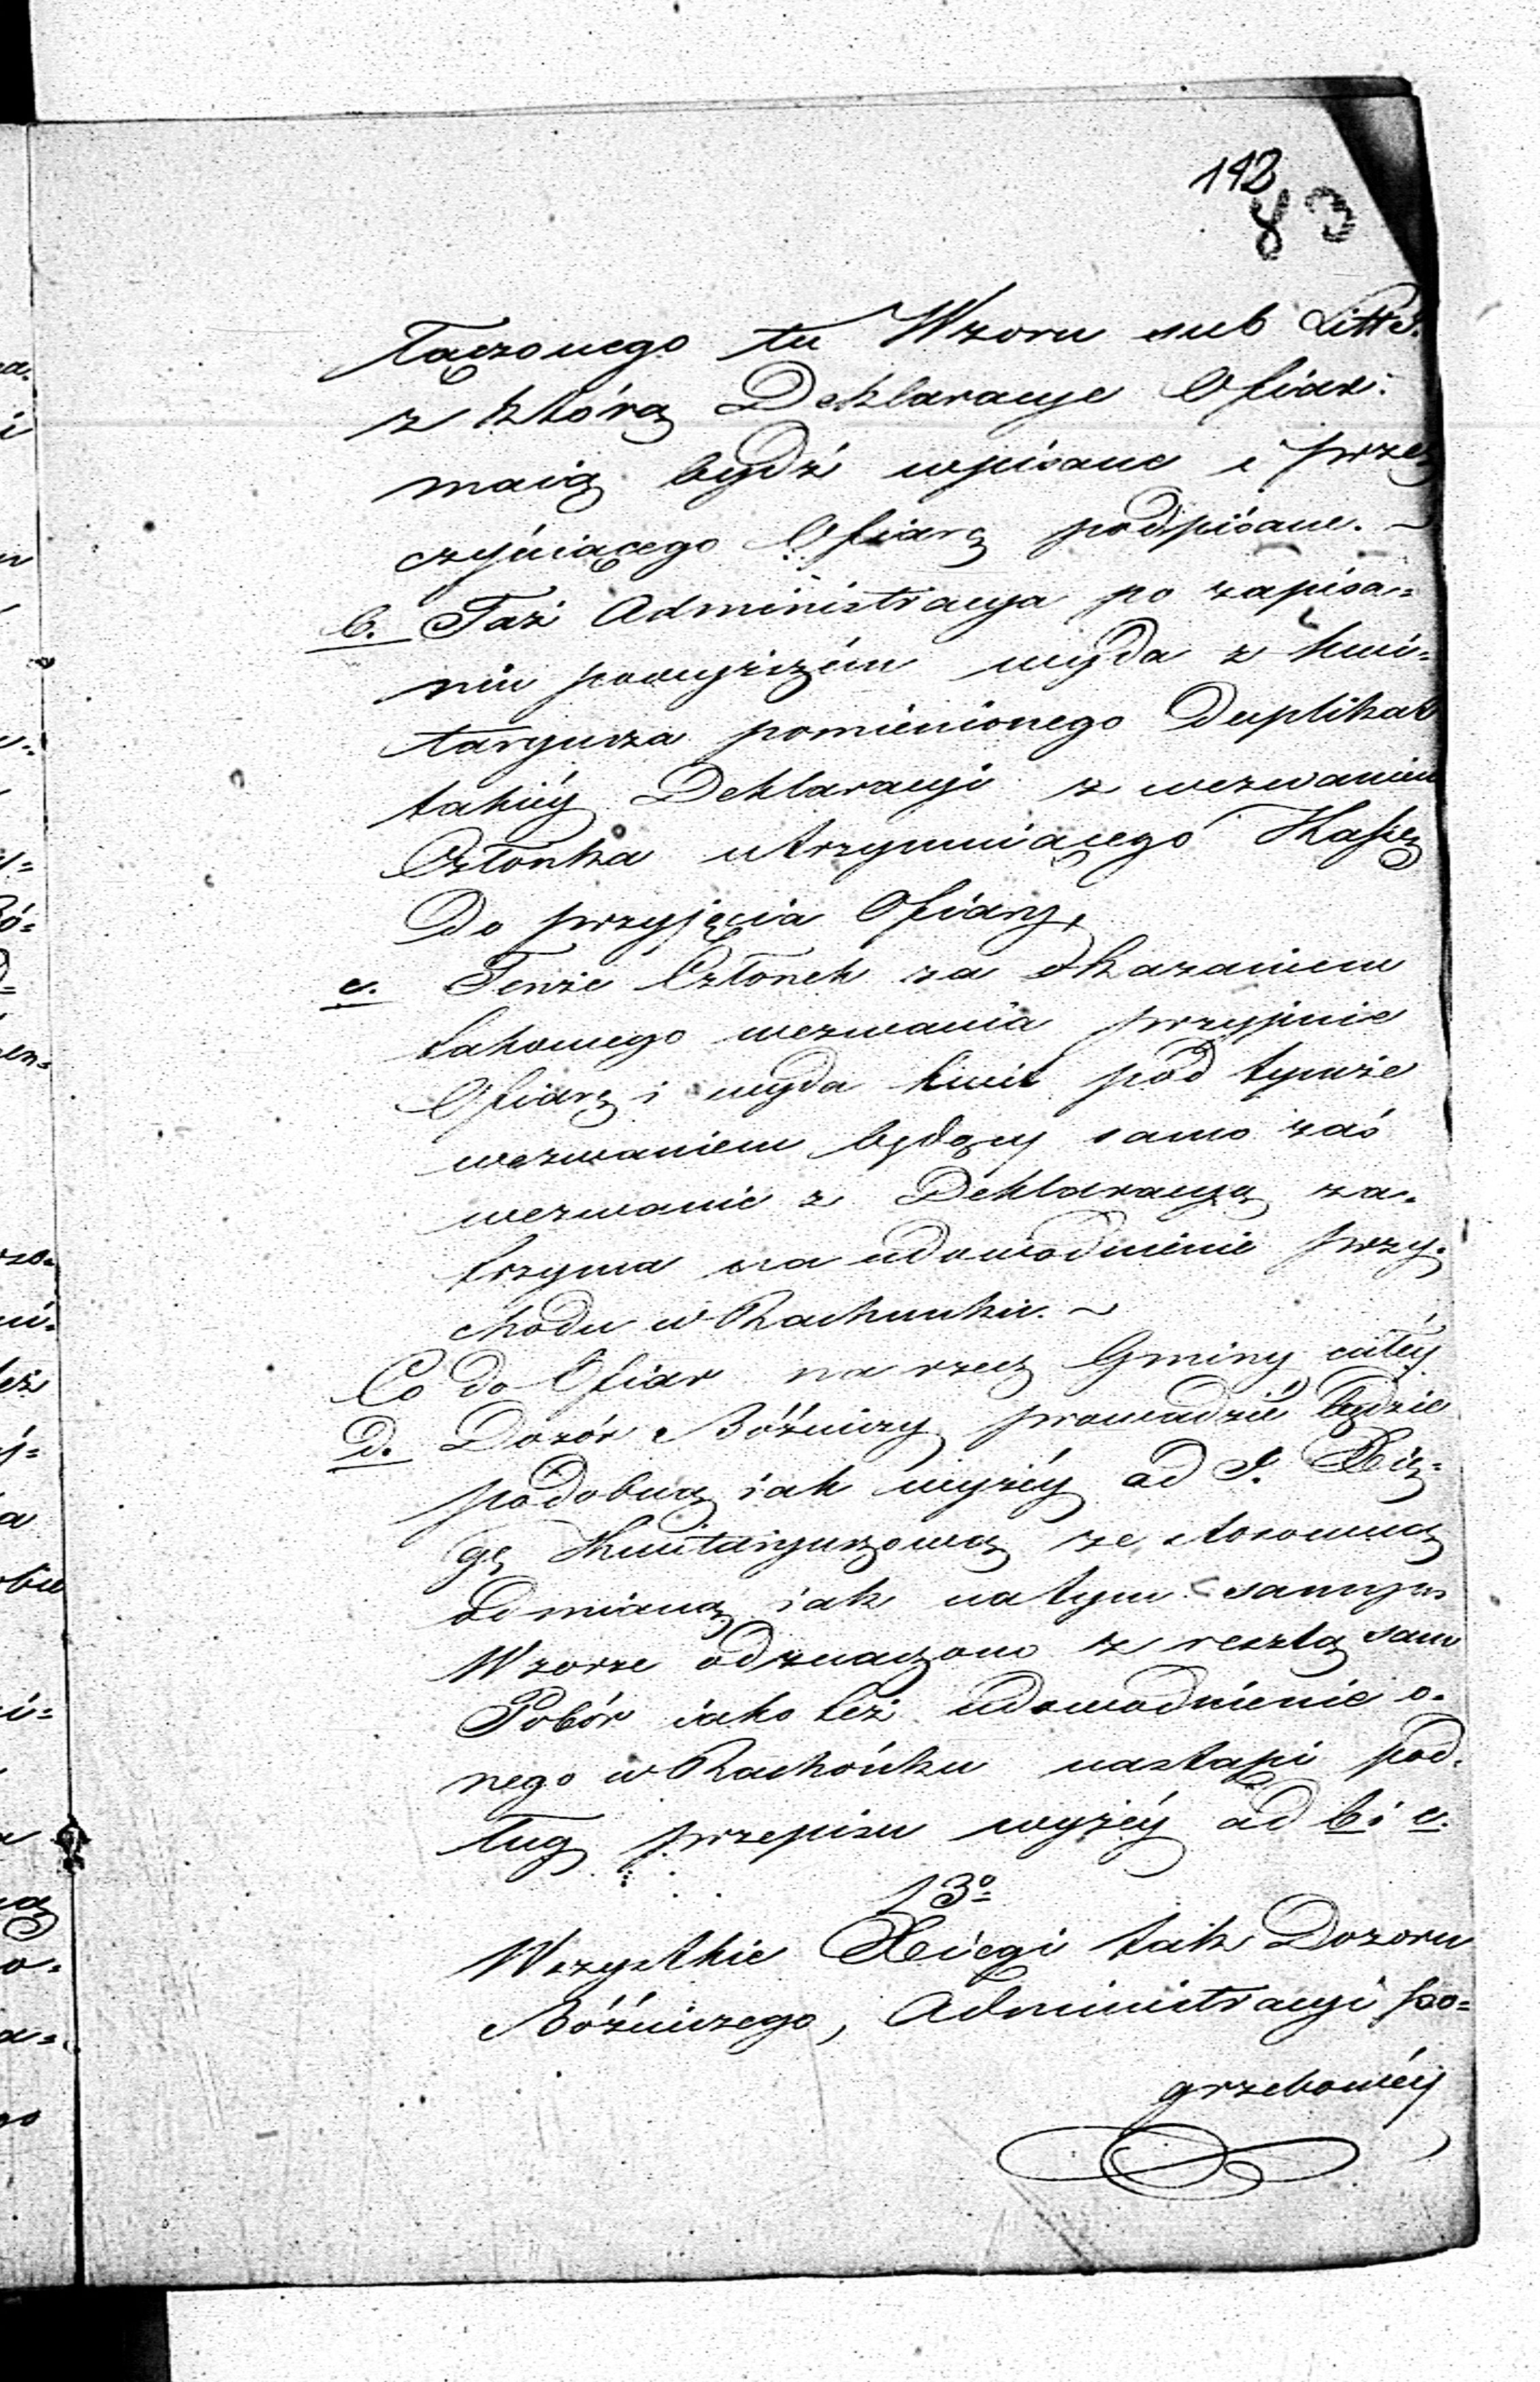 142
83
łączonego tu Wzoru sub Litt
z którą Deklaracye Ofiar
maią bydź wpisane i przez
czyniącego Ofiarę podpisane. ~
b. Taż Administracya po zapisa=
niu powyższém wyda z kwi=
taryusza pomienionego Duplikat
takiéy Deklaracyi z wezwaniem
Członka utrzymuiącego Kassę
do przyjęcia Ofiary,
c. Tenże Członek za okazaniem
takowego wezwania przyjmie
Ofiarę i wyda kwit pod tymże
wezwaniem będący samo zaś
wezwanie z Deklaracyą za=
trzyma na udowodnienie przy=
chodu w Rachunku. ~
Co do Ofiar na rzecz Gminy całéy
d. Dozór Bóźniczy prowadzić będzie
podobną iak wyżéy ad Xię=
gę Kwitaryuszową ze stosowną
odmianą iak na tym samym
Wzorze odznaczono z resztą sam
Pobór iako też udowodnienie o=
nego w Rachónku nastąpi pod=
ług przepisu wyżéy ad b i c.
13º
Wszystkie Xięgi tak Dozoru
Bóźniczego, Administracyi po=
grzebowéy